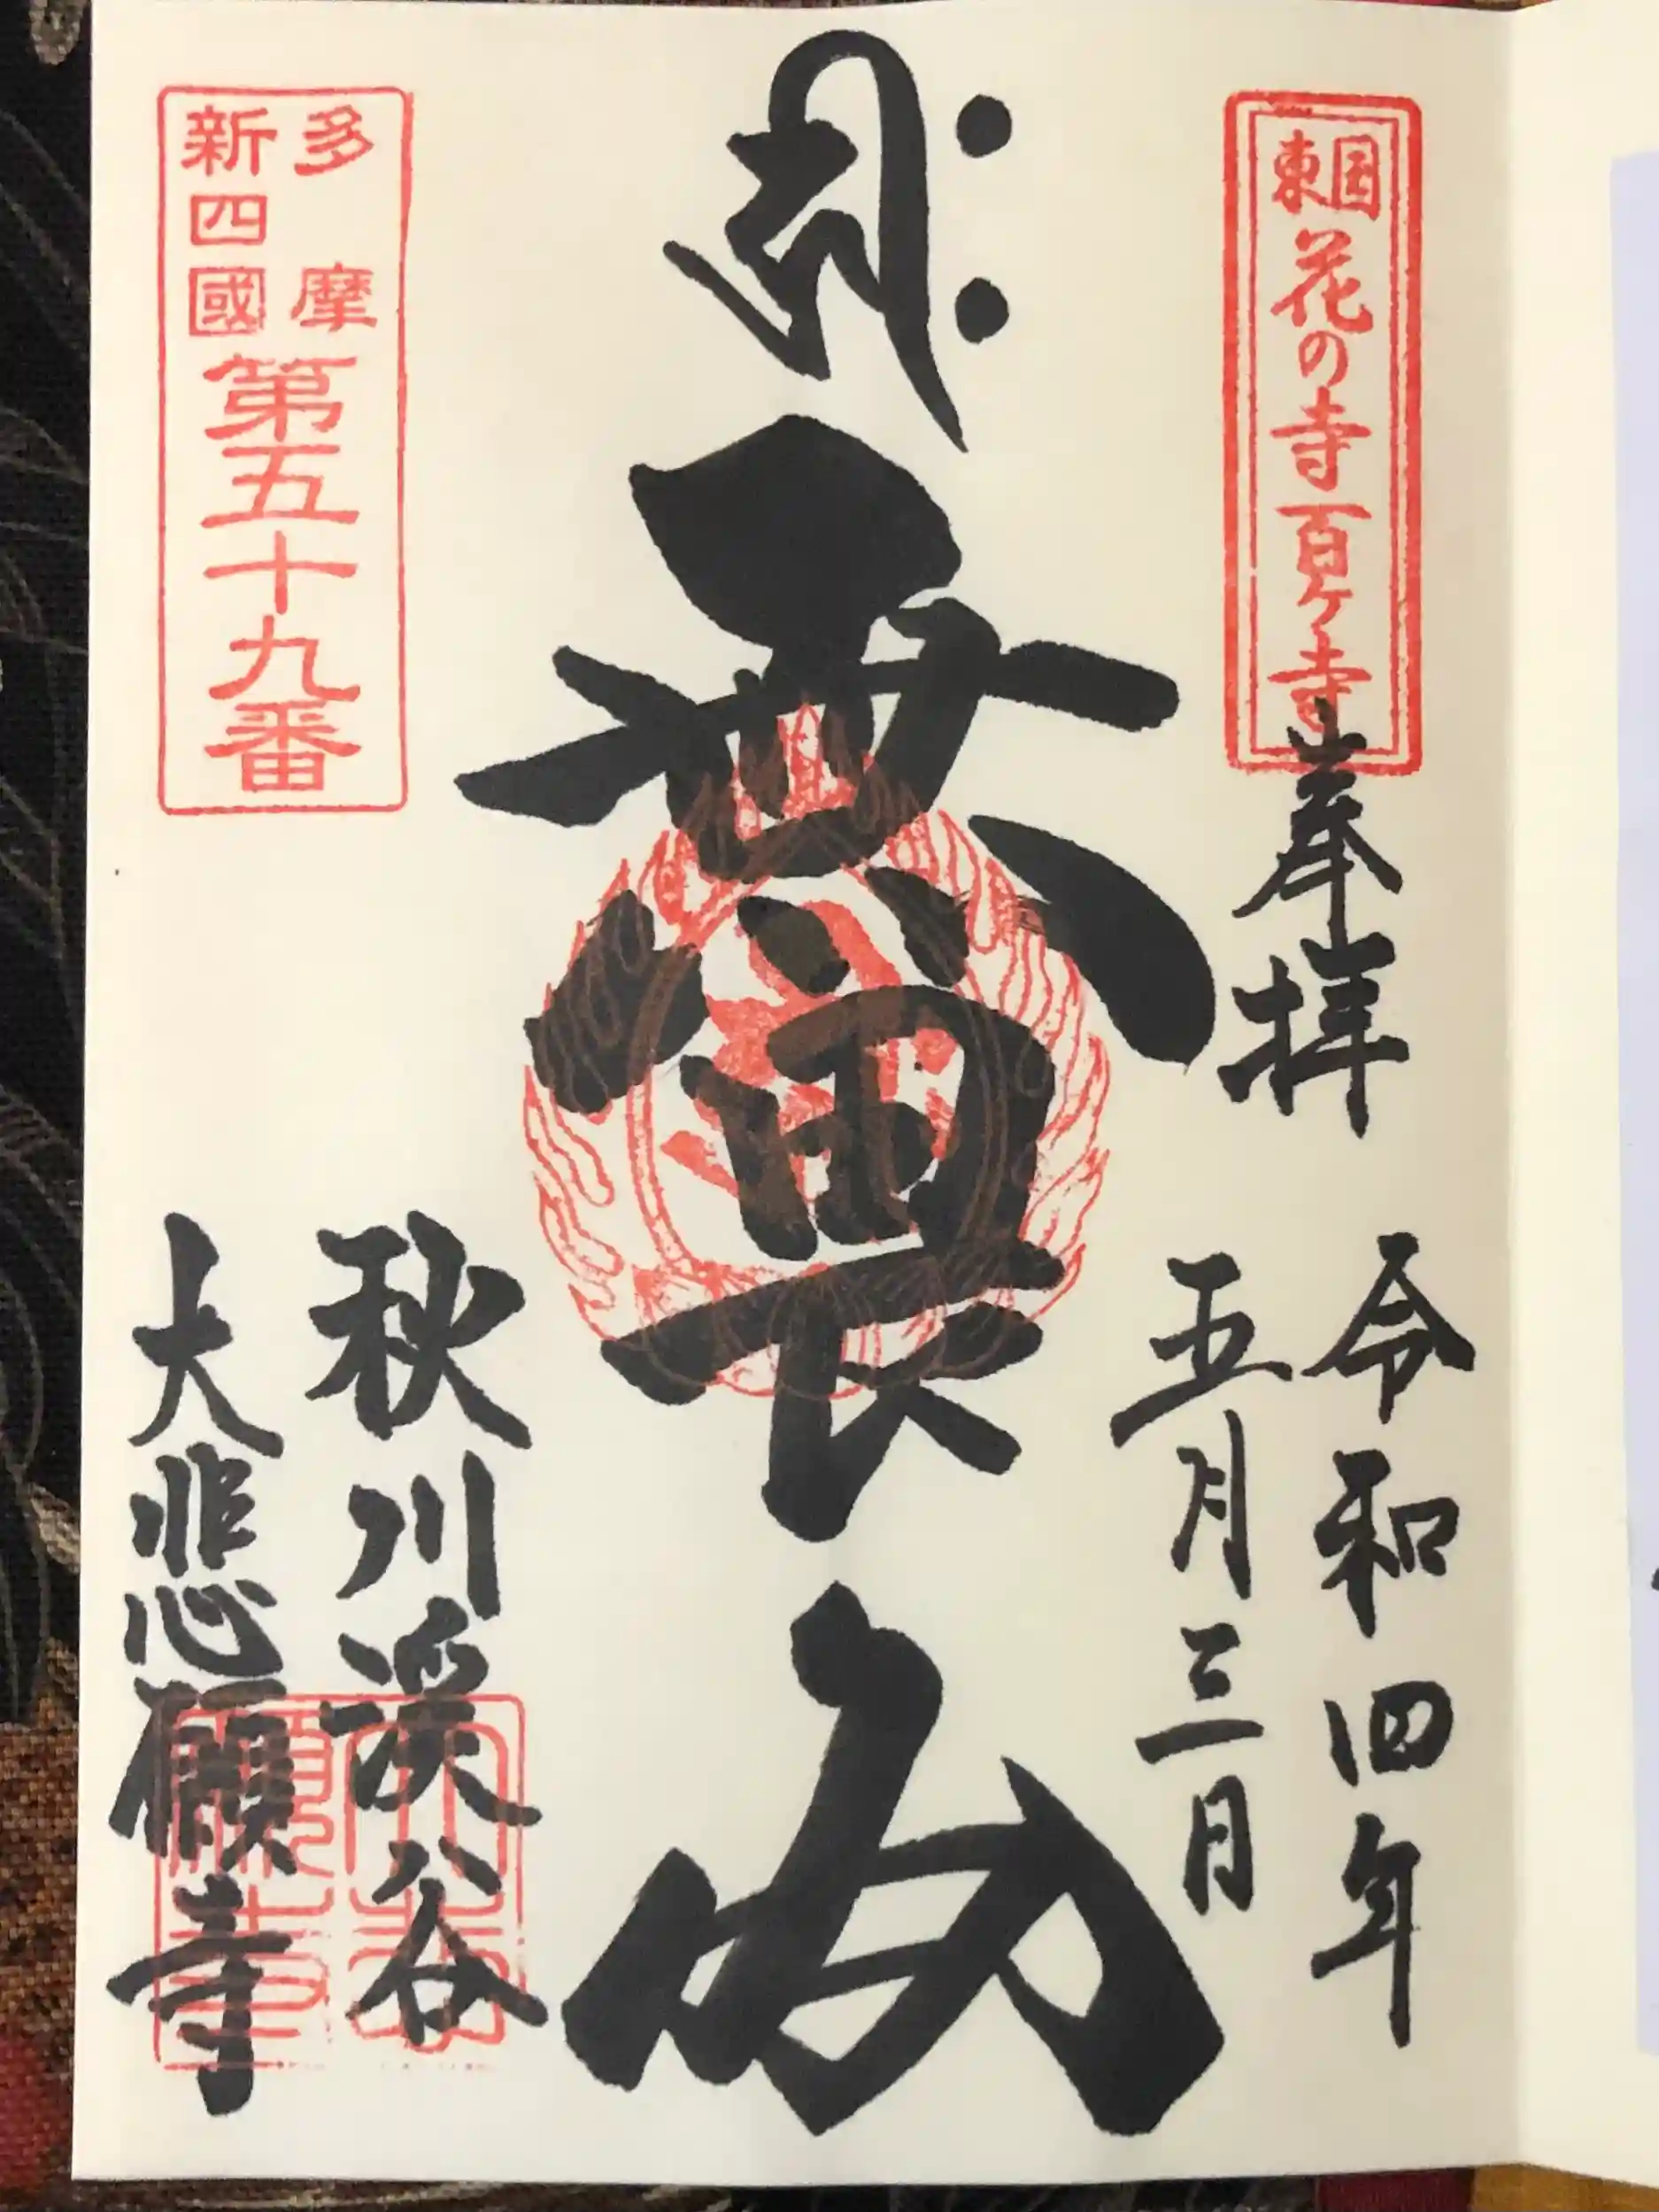 東国花の寺百ヶ寺
奉拝
令和四年
五月三日
無畏
秋川渓谷
大悲願寺
多摩
新四國
第五十九番